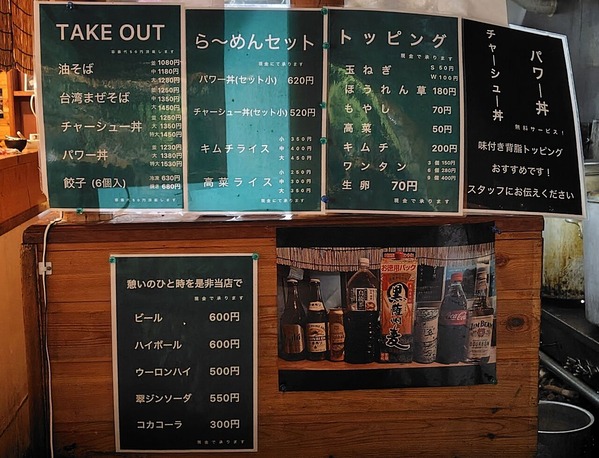 TAKE OUT
容器代50円頂戴します
油そば
並 1080円
中 1180円
大 1280円
台湾まぜそば
並 1250円
中 1350円
大 1450円
チャーシュー丼
並 1250円
大 1350円
特大1450円
パワー丼
並 1230円
大 1380円
特大1530円
餃子 (6個入)
冷凍 630円
焼き 680円
ら〜めんセット
現金にて承ります
パワー丼(セット小) 620円
チャーシュー丼(セット小) 520円
キムチライス
小 350円
中 400円
大 450円
高菜ライス
小 250円
中 300円
大 350円
現金にて承ります
トッピング
現金で承ります
玉ねぎ
S 50円
W 100円
ほうれん草 180円
もやし 70円
高菜 50円
キムチ 200円
ワンタン
3個 150円
6個 280円
9個 400円
生卵 70円
現金で承ります
パワー丼
チャーシュー丼
無料サービス!
味付き背脂トッピング
おすすめです!
スタッフにお伝えください
憩いのひと時を是非当店で
現金で承ります
ビール 600円
ハイボール 600円
ウーロンハイ 500円
翠ジンソーダ 550円
コカコーラ 300円
現金で承ります
お徳用パック
黒
Coca-Cola
JIM BEAM